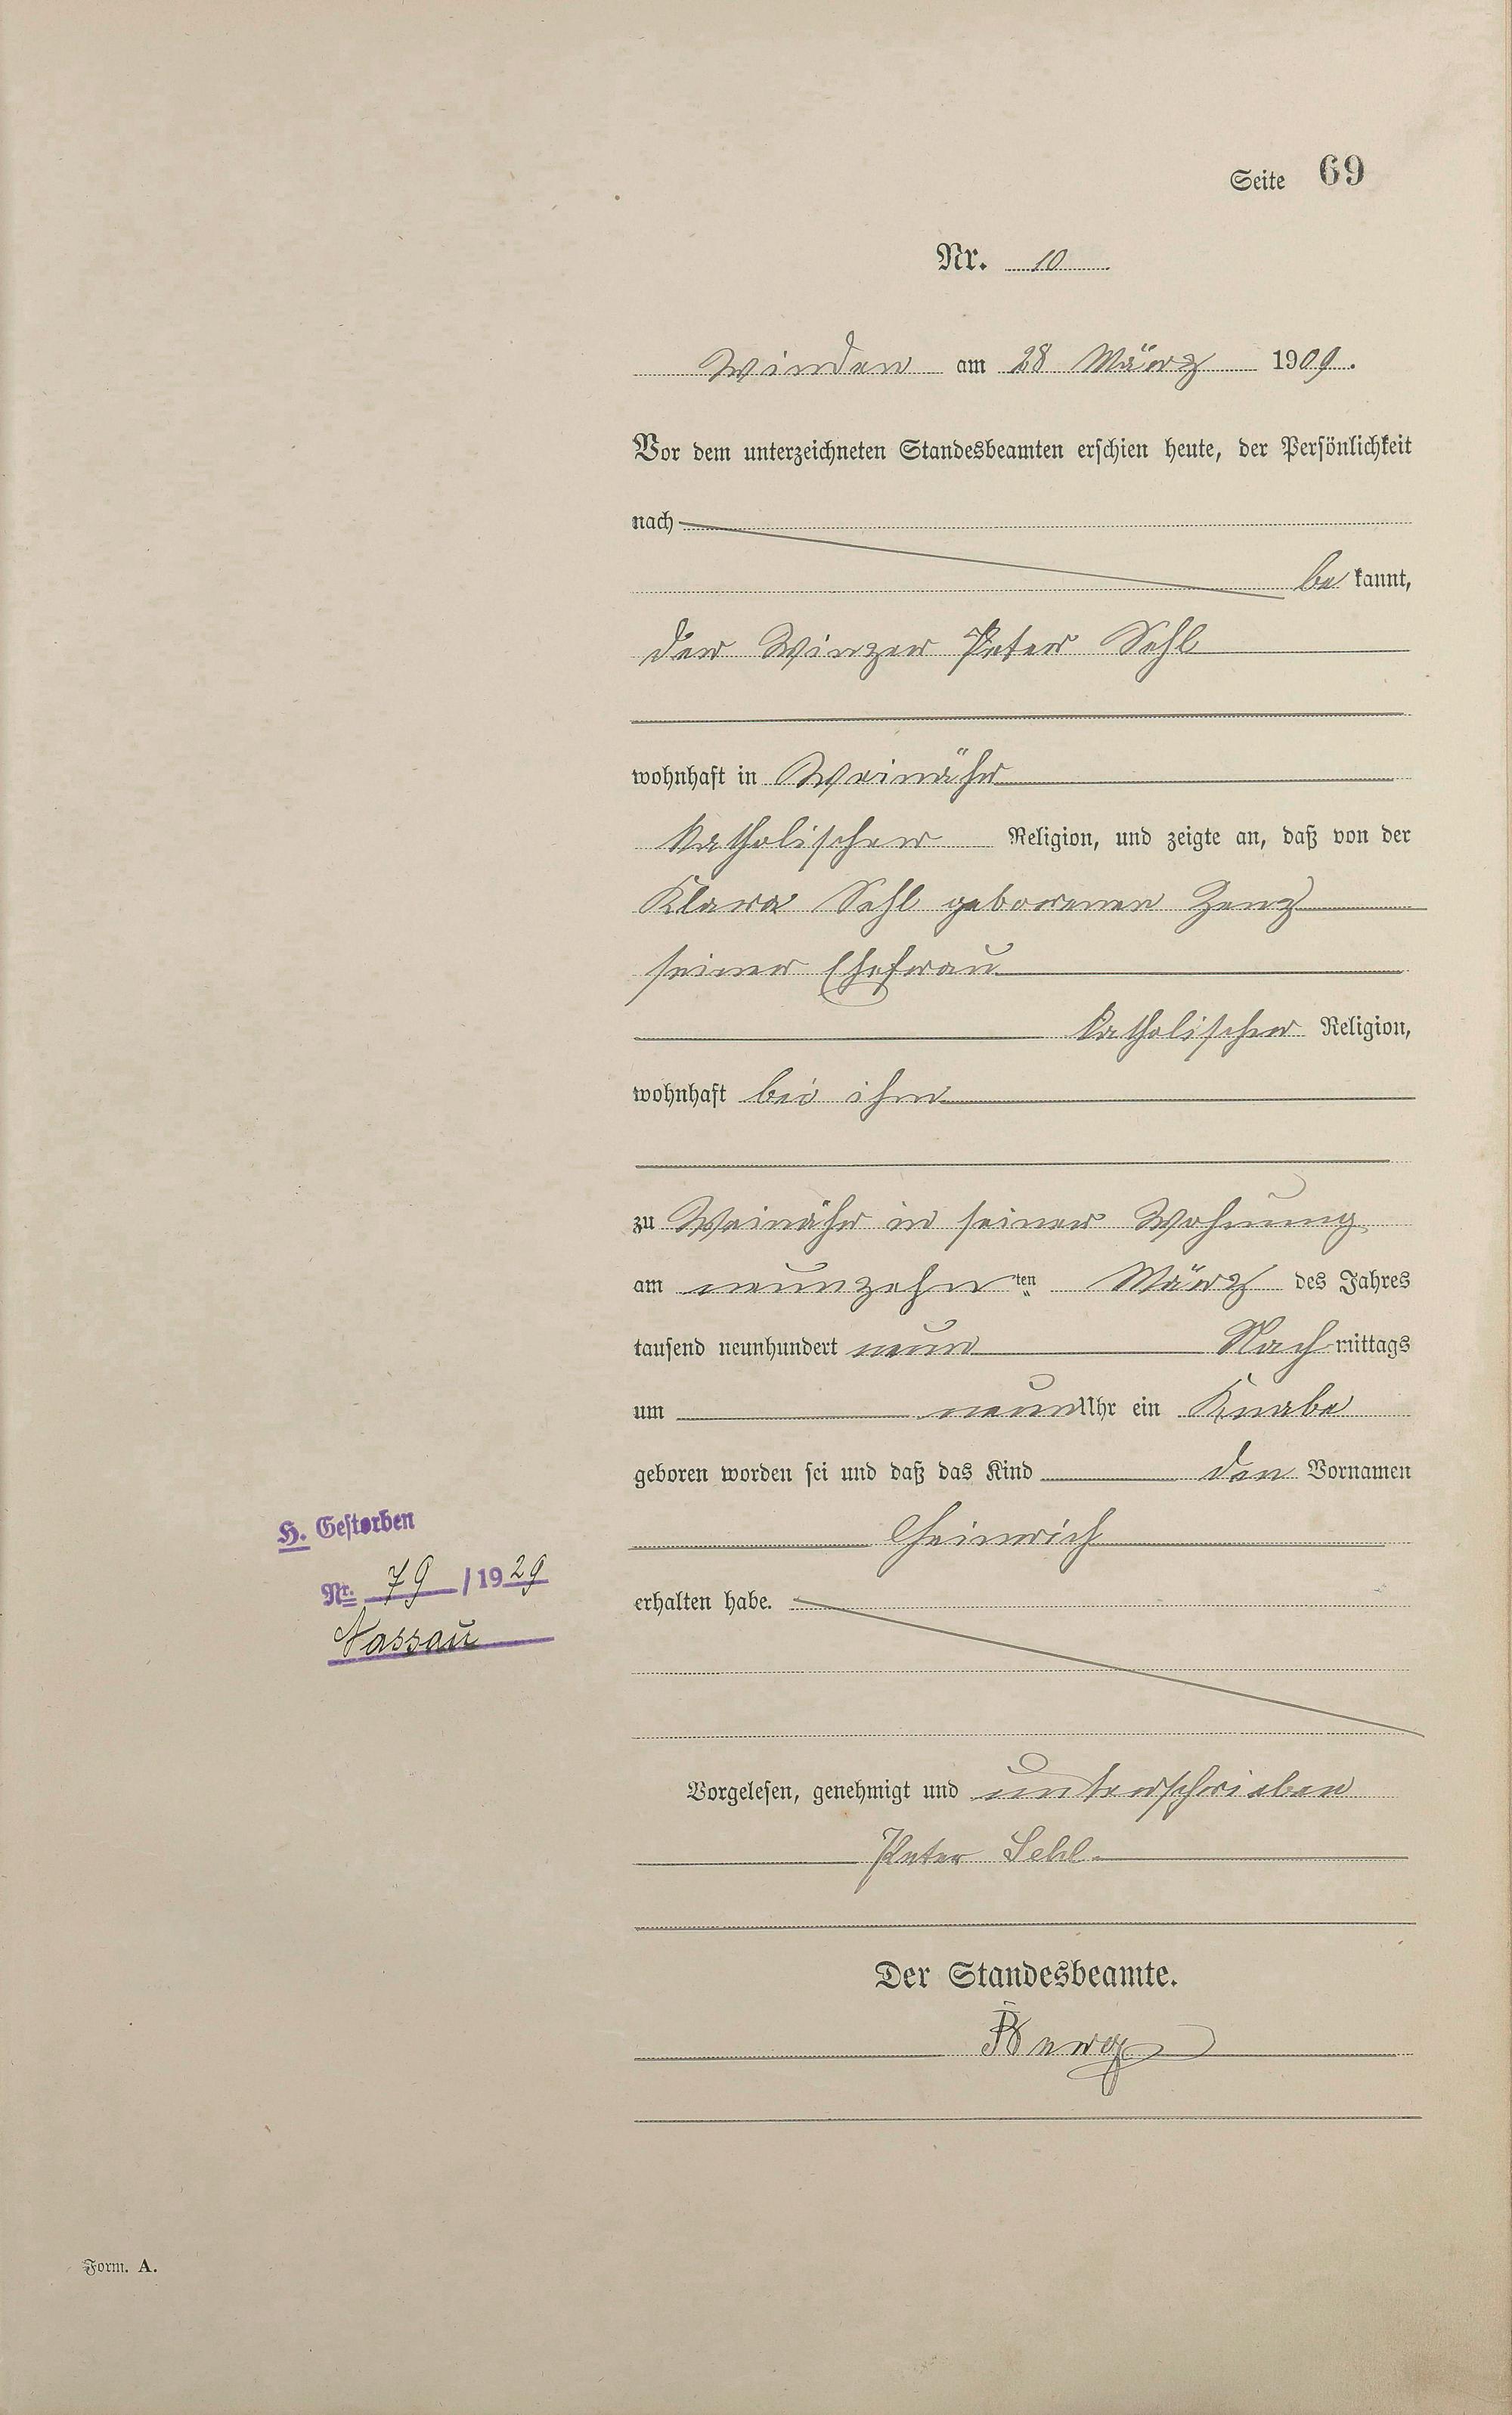 Seite 69
Nr. 10
Winden am 28 März 1909.
Vor dem unterzeichneten Standesbeamten erschien heute, der Persönlichkeit
nach
be kannt,
der Winzer Peter Sehl
wohnhaft in Weinähr
katholischer Religion, und zeigte an, daß von der
Klara Sehl geborenen Zenz
seiner Ehefrau
katholischer Religion,
wohnhaft bei ihm
zu Weinähr in seiner Wohnung
am neunzehn ten März des Jahres
tausend neunhundert neun Nach mittags
um neun Uhr ein Knabe
geboren worden sei und daß das Kind den Vornamen
Heinrich
erhalten habe.
H. Gestorben
Nr. 79 / 1929
Nassau
Vorgelesen, genehmigt und unterschrieben
Peter Sehl
Der Standesbeamte.
Berg
Form. A.